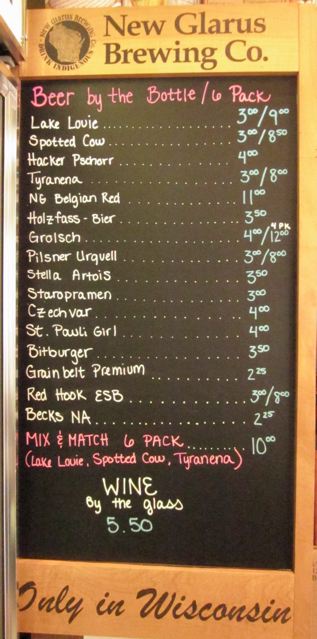 New Glarus
Brewing Co.
NEW GLARUS BREWING CO.
DRINK INDIGENOUS
Beer by the Bottle/6 Pack
Lake Louie 3⁰⁰/9⁰⁰
Spotted Cow 3⁰⁰/8⁵⁰
Hacker Pschorr 4⁰⁰
Tyranena 3⁰⁰/8⁰⁰
NG Belgian Red 11⁰⁰
Holzfass-Bier 3⁵⁰
Grolsch 4⁰⁰/12⁰⁰ 4 PK
Pilsner Urquell 3⁰⁰/8⁰⁰
Stella Artois 3⁵⁰
Staropramen 3⁰⁰
Czechvar 4⁰⁰
St. Pauli Girl 4⁰⁰
Bitburger 3⁵⁰
Grainbelt Premium 2²⁵
Red Hook ESB 3⁰⁰/8⁰⁰
Becks NA 2²⁵
MIX & MATCH 6 PACK 10⁰⁰
(Lake Louie, Spotted Cow, Tyranena)
WINE
By the glass
5.50
Only in Wisconsin